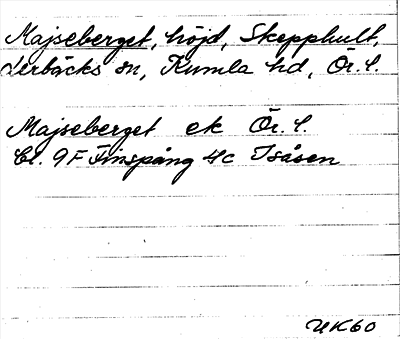 Majseberget, höjd, Skepphult,
Lerbäcks sn, Kumla hd, Ör. l.
Majseberget ek Ör. l.
Bl. 9F Finspång 4c Isåsen
UK60